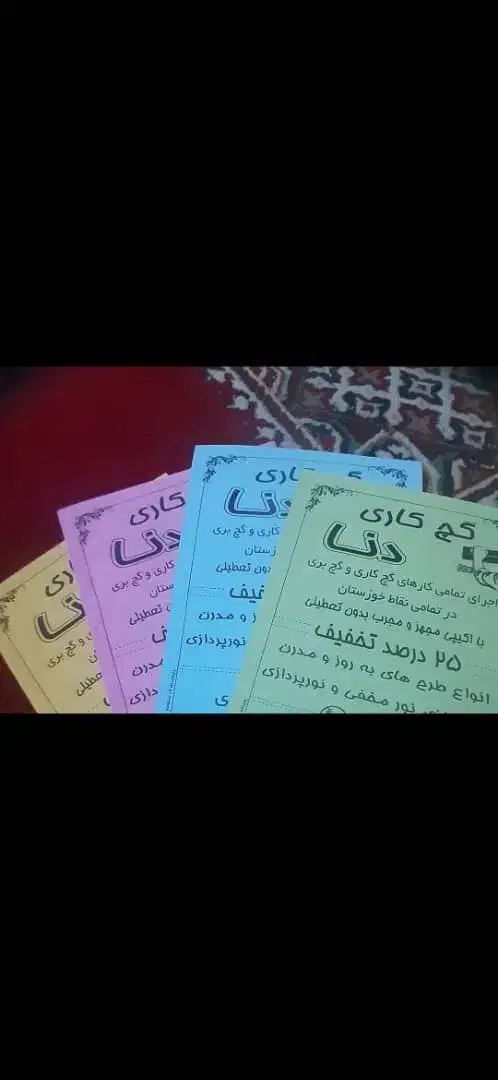 گچ کاری
دنا
اجرای تمامی کارهای گچ کاری و گچ بری
در تمامی نقاط خوزستان
با اکیپی مجهز و مجرب بدون تعطیلی
۲۵ درصد تخفیف
انواع طرح های به روز و مدرن
نور مخفی و نورپردازی
کاری
دنا
کاری و گچ بری
زستان
دون تعطیلی
فیف
ز و مدرن
نورپردازی
ی
کاری
دنا
کاری و گچ بری
ستان
تعطیلی
ف
مدرن
دازی
ری
نا
و گچ بری
ن
عطیلی